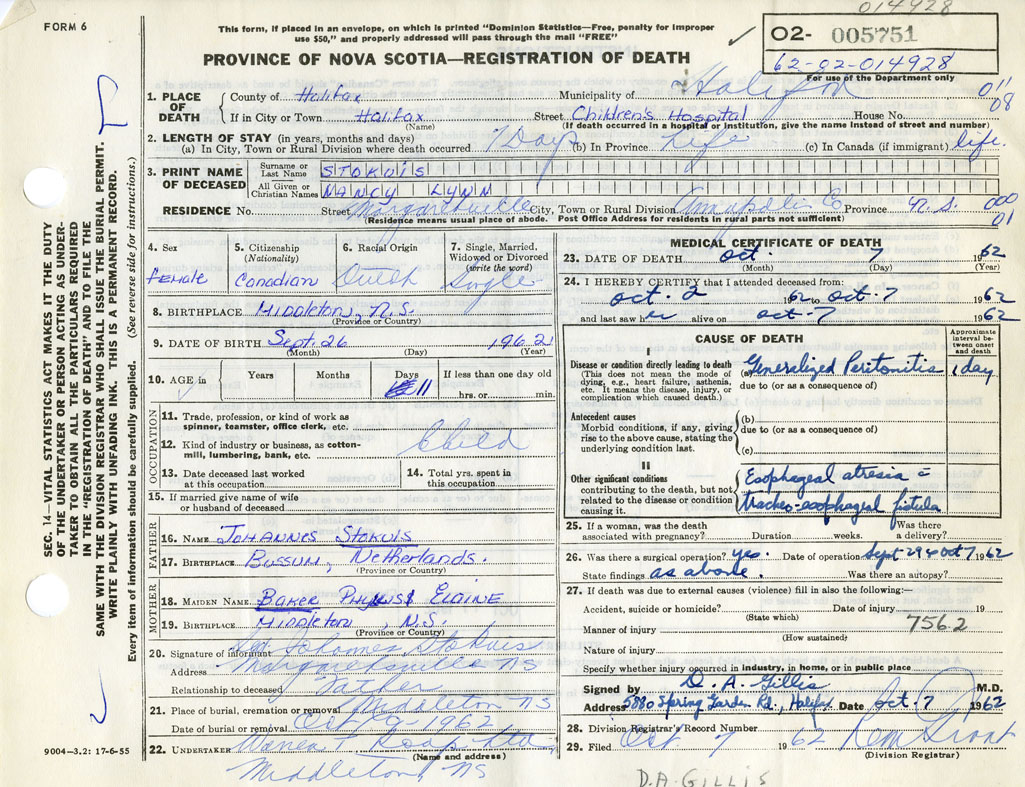 014928
FORM 6
This form, if placed in an envelope, on which is printed "Dominion Statistics—Free, penalty for improper
use $50," and properly addressed will pass through the mail "FREE"
✓ 02- 005751
62-02-014928
For use of the Department only
PROVINCE OF NOVA SCOTIA—REGISTRATION OF DEATH
1. PLACE OF DEATH
County of Halifax Municipality of Halifax 011
If in City or Town Halifax Street Children's Hospital House No. 08
(Name) (If death occurred in a hospital or institution, give the name instead of street and number)
2. LENGTH OF STAY (in years, months and days)
(a) In City, Town or Rural Division where death occurred 7 Days (b) In Province Life (c) In Canada (if immigrant) life.
3. PRINT NAME OF DECEASED
Surname or Last Name STOKUIS
All Given or Christian Names NANCY LYNN
RESIDENCE No. Street Margaretsville City, Town or Rural Division Annapolis Co Province N.S. 000
(Residence means usual place of abode. Post Office Address for residents in rural parts not sufficient) 01
4. Sex
Female
5. Citizenship
(Nationality)
Canadian
6. Racial Origin
Dutch
7. Single, Married,
Widowed or Divorced
(write the word)
Single
8. BIRTHPLACE Middleton, N.S.
(Province or Country)
9. DATE OF BIRTH Sept. 26 1962
(Month) (Day) (Year)
10. AGE in
Years Months Days If less than one day old
11 hrs. or min.
OCCUPATION
11. Trade, profession, or kind of work as
spinner, teamster, office clerk, etc.
12. Kind of industry or business, as cotton-
mill, lumbering, bank, etc.
Child
13. Date deceased last worked
at this occupation
14. Total yrs. spent in
this occupation
15. If married give name of wife
or husband of deceased
FATHER
16. NAME JOHANNES STOKUIS
17. BIRTHPLACE Bussum, Netherlands.
(Province or Country)
MOTHER
18. MAIDEN NAME BAKER PHYLLIS ELAINE
19. BIRTHPLACE Middleton, N.S.
(Province or Country)
20. Signature of informant Johannes Stokuis
Address Margaretsville NS
Relationship to deceased Father
21. Place of burial, cremation or removal Middleton NS
Date of burial or removal Oct 9-1962
22. UNDERTAKER
(Name and address)
Middleton, NS
MEDICAL CERTIFICATE OF DEATH
23. DATE OF DEATH Oct. 7 1962
(Month) (Day) (Year)
24. I HEREBY CERTIFY that I attended deceased from:
Oct. 2 1962 to Oct. 7 1962
and last saw her alive on Oct. 7 1962
CAUSE OF DEATH
Approximate
interval be-
tween onset
and death
I
Disease or condition directly leading to death
(This does not mean the mode of
dying, e.g., heart failure, asthenia,
etc. It means the disease, injury, or
complication which caused death.)
(a) Generalized Peritonitis 1 day
due to (or as a consequence of)
Antecedent causes
Morbid conditions, if any, giving
rise to the above cause, stating the
underlying condition last.
(b)
due to (or as a consequence of)
(c)
II
Other significant conditions
contributing to the death, but not
related to the disease or condition
causing it.
Esophageal atresia c̄
tracheo-esophageal fistula
25. If a woman, was the death Was there
associated with pregnancy? Duration weeks. a delivery?
26. Was there a surgical operation? yes. Date of operation Sept 29 & Oct 7, 1962
State findings as above. Was there an autopsy?
27. If death was due to external causes (violence) fill in also the following:—
Accident, suicide or homicide? Date of injury 19
(State which) 756.2
Manner of injury
(How sustained)
Nature of injury
Specify whether injury occurred in industry, in home, or in public place
Signed by D. A. Gillis M.D.
Address 5880 Spring Garden Rd., Halifax Date Oct. 7 1962
28. Division Registrar's Record Number
29. Filed Oct 7 1962
(Division Registrar)
D.A. GILLIS
SEC. 14—VITAL STATISTICS ACT MAKES IT THE DUTY
OF THE UNDERTAKER OR PERSON ACTING AS UNDER-
TAKER TO OBTAIN ALL THE PARTICULARS REQUIRED
IN THE "REGISTRATION OF DEATH" AND TO FILE THE
SAME WITH THE DIVISION REGISTRAR WHO SHALL ISSUE THE BURIAL PERMIT.
WRITE PLAINLY WITH UNFADING INK. THIS IS A PERMANENT RECORD.
Every item of information should be carefully supplied. (See reverse side for instructions.)
9004—3.2: 17-6-55